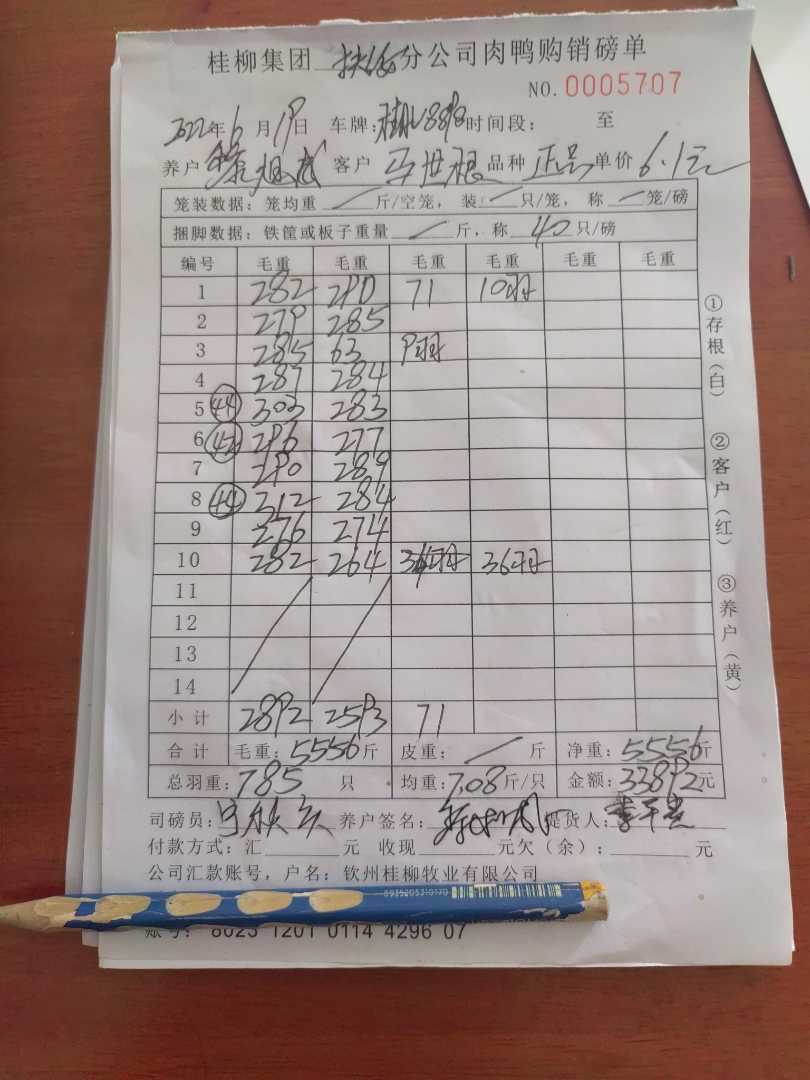 桂柳集团 分公司肉鸭购销磅单
NO.0005707
2022年6月19日 车牌: 时间段: 至
养户 客户 马世根 品种 正品 单价 6.1元
笼装数据:笼均重 / 斤/空笼, 装: / 只/笼, 称 / 笼/磅
捆脚数据:铁筐或板子重量 / 斤,称 40 只/磅
编号 毛重 毛重 毛重 毛重 毛重 毛重
1 282 290 71 10羽
2 279 285
3 285 63 9羽
4 287 284
5 44 303 283
6 42 296 277
7 290 289
8 44 312 284
9 276 274
10 282 264 36羽
11
12
13
14
小计 2892 2593 71
合计 毛重:5556斤 皮重: / 斤 净重:5556斤
总羽重:785 只 均重:7.08斤/只 金额:33892元
司磅员: 养户签名: 提货人:
付款方式:汇 元 收现 元欠(余): 元
公司汇款账号,户名:钦州桂柳牧业有限公司
账号: 8023 1201 0114 4296 07
①存根(白)
②客户(红)
③养户(黄)
6935205310170